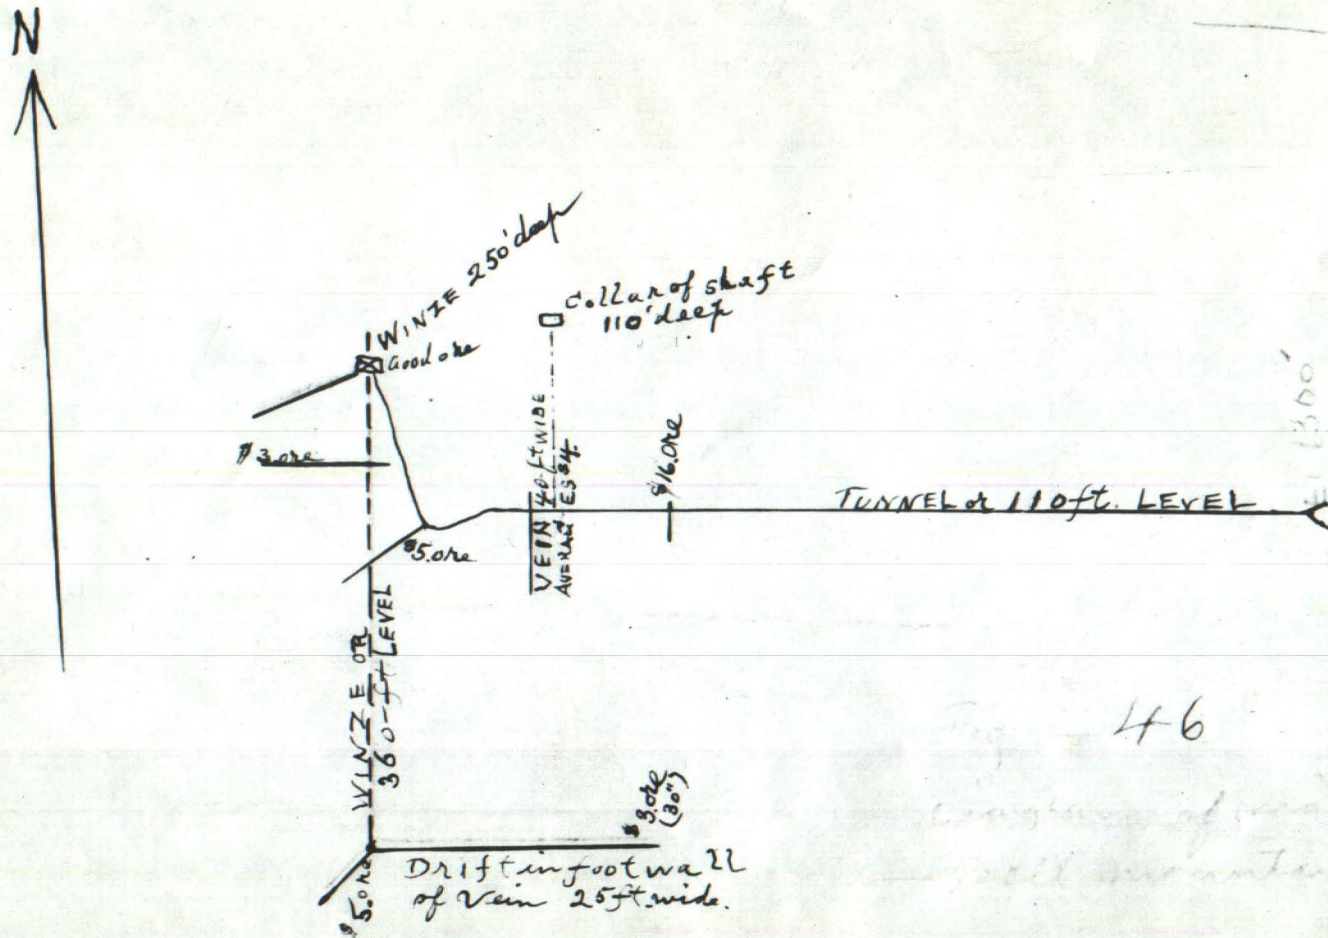 N
WINZE 250' deep
Good ore
Collar of shaft
110' deep
$3.ore
VEIN 40 ft WIDE
AVERAGES $4.
$16.ore
TUNNEL or 110ft. LEVEL
1300'
$5.ore
WINZE OR
360-ft LEVEL
46
$3.ore
(30")
Drift in foot wall
of Vein 25 ft. wide.
$5.ore